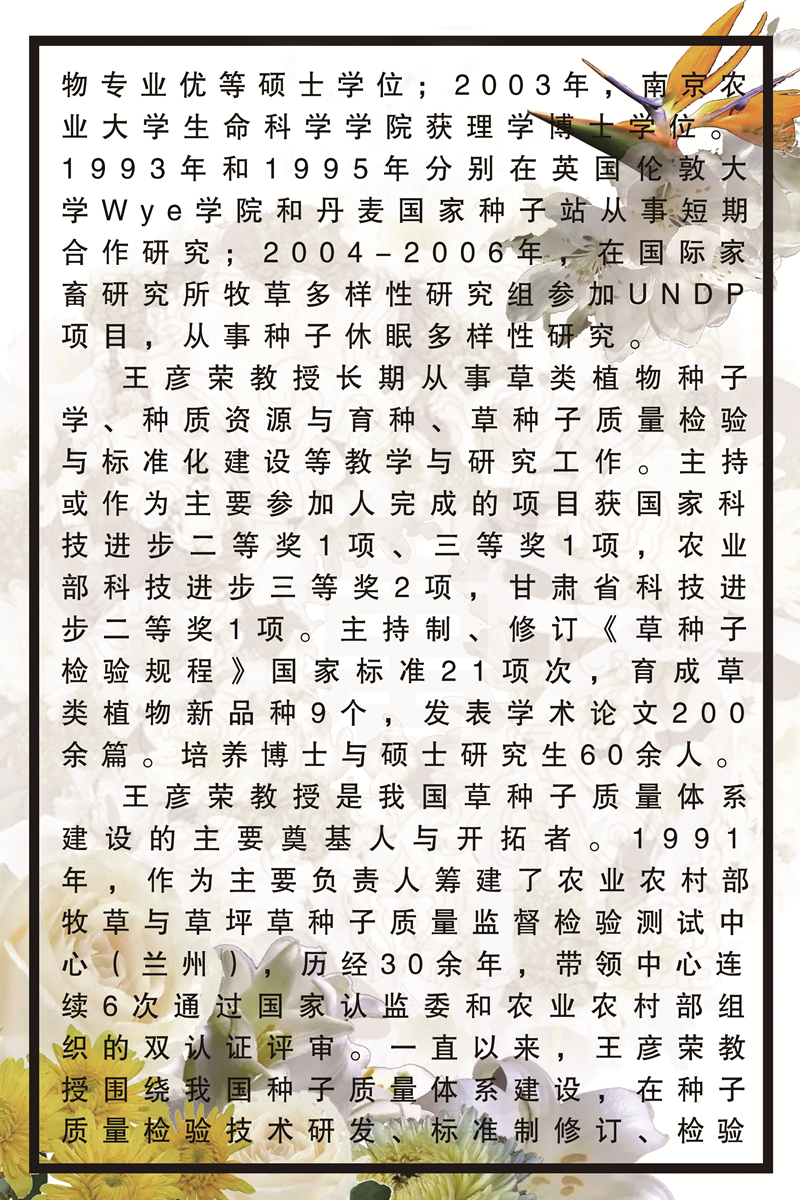 物专业优等硕士学位；2003年，南京农
业大学生命科学学院获理学博士学位。
1993年和1995年分别在英国伦敦大
学Wye学院和丹麦国家种子站从事短期
合作研究；2004-2006年，在国际家
畜研究所牧草多样性研究组参加UNDP
项目，从事种子休眠多样性研究。
王彦荣教授长期从事草类植物种子
学、种质资源与育种、草种子质量检验
与标准化建设等教学与研究工作。主持
或作为主要参加人完成的项目获国家科
技进步二等奖1项、三等奖1项，农业
部科技进步三等奖2项，甘肃省科技进
步二等奖1项。主持制、修订《草种子
检验规程》国家标准21项次，育成草
类植物新品种9个，发表学术论文200
余篇。培养博士与硕士研究生60余人。
王彦荣教授是我国草种子质量体系
建设的主要奠基人与开拓者。1991
年，作为主要负责人筹建了农业农村部
牧草与草坪草种子质量监督检验测试中
心（兰州），历经30余年，带领中心连
续6次通过国家认监委和农业农村部组
织的双认证评审。一直以来，王彦荣教
授围绕我国种子质量体系建设，在种子
质量检验技术研发、标准制修订、检验